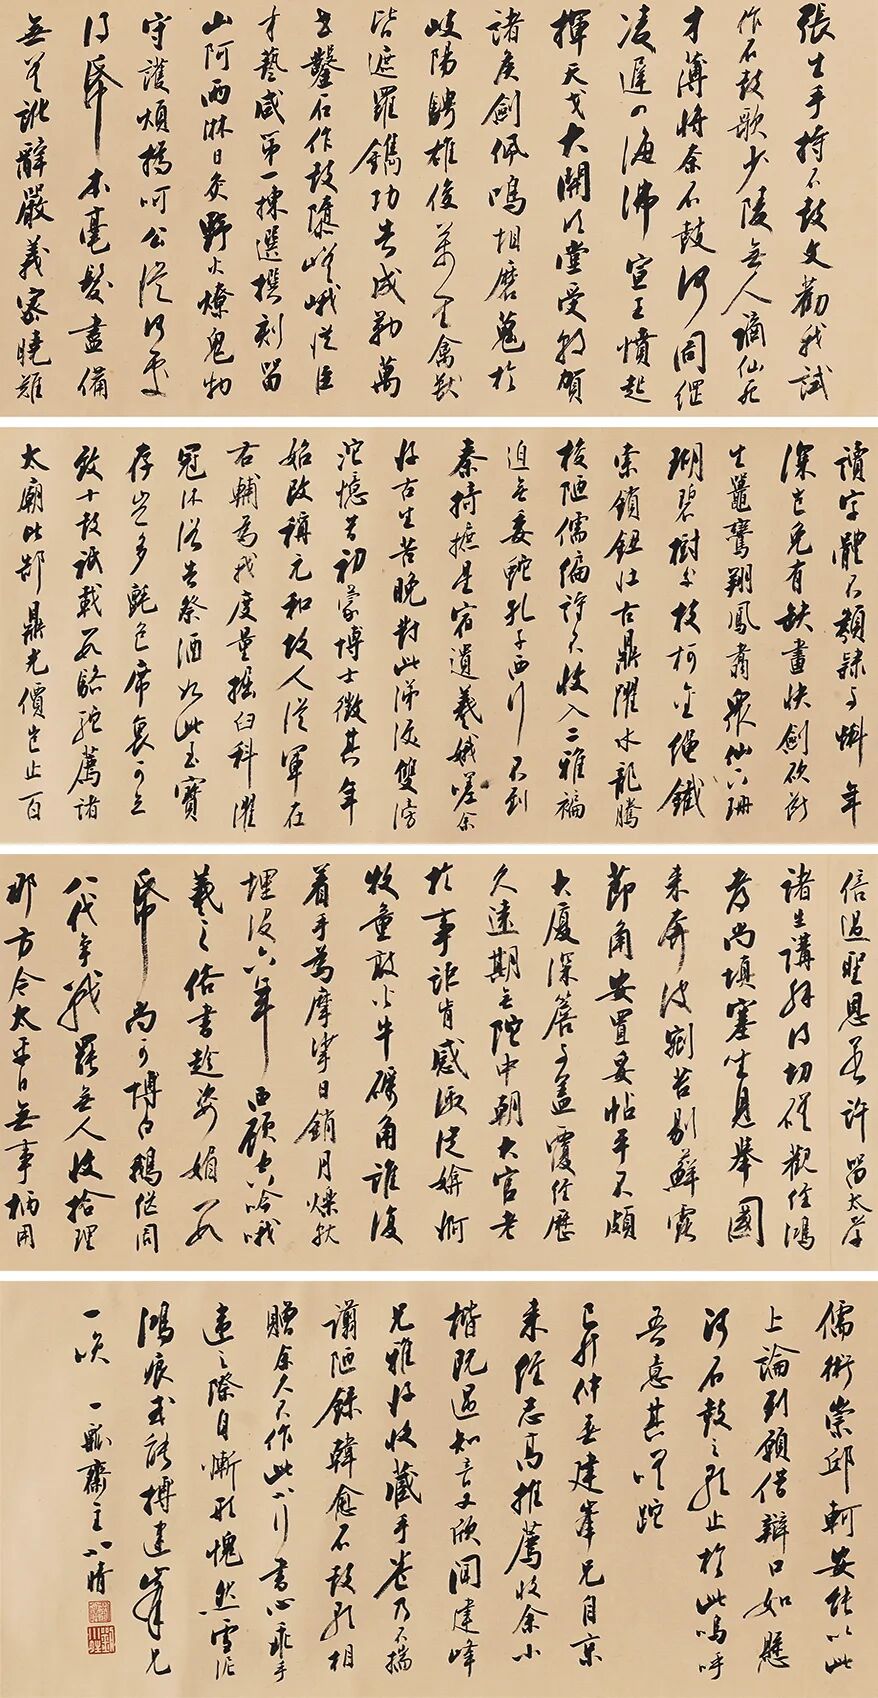 張生手持石鼓文勸我試
作石鼓歌少陵無人謫仙死
才薄將奈石鼓何周綱
凌遲四海沸宣王憤起
揮天戈大開明堂受朝賀
諸侯劍佩鳴相磨蒐於
岐陽騁雄俊萬里禽獸
皆遮羅鐫功告成勒萬
世鑿石作鼓隳嵯峨從臣
才藝咸第一揀選撰刻留
山阿雨淋日炙野火燎鬼物
守護煩撝呵公從何處
得紙本毫髮盡備
無差訛辭嚴義密曉難
讀字體不類隸與蝌年
深豈免有缺畫快劍斫斷
生鼉鸞翔鳳翥衆仙下珊
瑚碧樹交枝柯金繩鐵
索鎖鈕壮古鼎躍水龍騰
梭陋儒編詩不收入二雅褊
迫無委蛇孔子西行不到
秦掎摭星宿遺羲娥嗟余
好古生苦晚對此涕淚雙滂
沱憶昔初蒙博士徵其年
始改稱元和故人從軍在
右輔為我度量掘臼科濯
冠沐浴告祭酒如此至寶
存豈多氈包席裹可立
致十鼓祇載數駱駝薦諸
太廟比郜鼎光價豈止百
倍過聖恩若許留太學
諸生講解得切磋觀經鴻
都尚填塞坐見舉國
來奔波剜苔剔蘚露
節角安置妥帖平不頗
大厦深簷與蓋覆經歷
久遠期無陀中朝大官老
於事詎肯感激徒媕婀
牧童敲火牛礪角誰復
着手為摩挲日銷月爍就
埋没六年西顧空吟哦
羲之俗書趁姿媚數
紙尚可博白鵝繼周
八代爭戰罷無人收拾理
那方今太平日無事柄用
儒術崇邱軻安能以此
上論列願借辯口如懸
河石鼓之歌止於此嗚呼
吾意其蹉跎
己丑仲春建峯兄自京
來經志高推薦收余小
楷既遇知音又欣聞建峰
兄雅好收藏手卷乃不揣
謭陋錄韓愈石鼓歌相
贈余久不作此小行書心乖手
違之際自慚形愧然雪泥
鴻痕或能搏建峯兄
一咲 一瓢齋主小晴